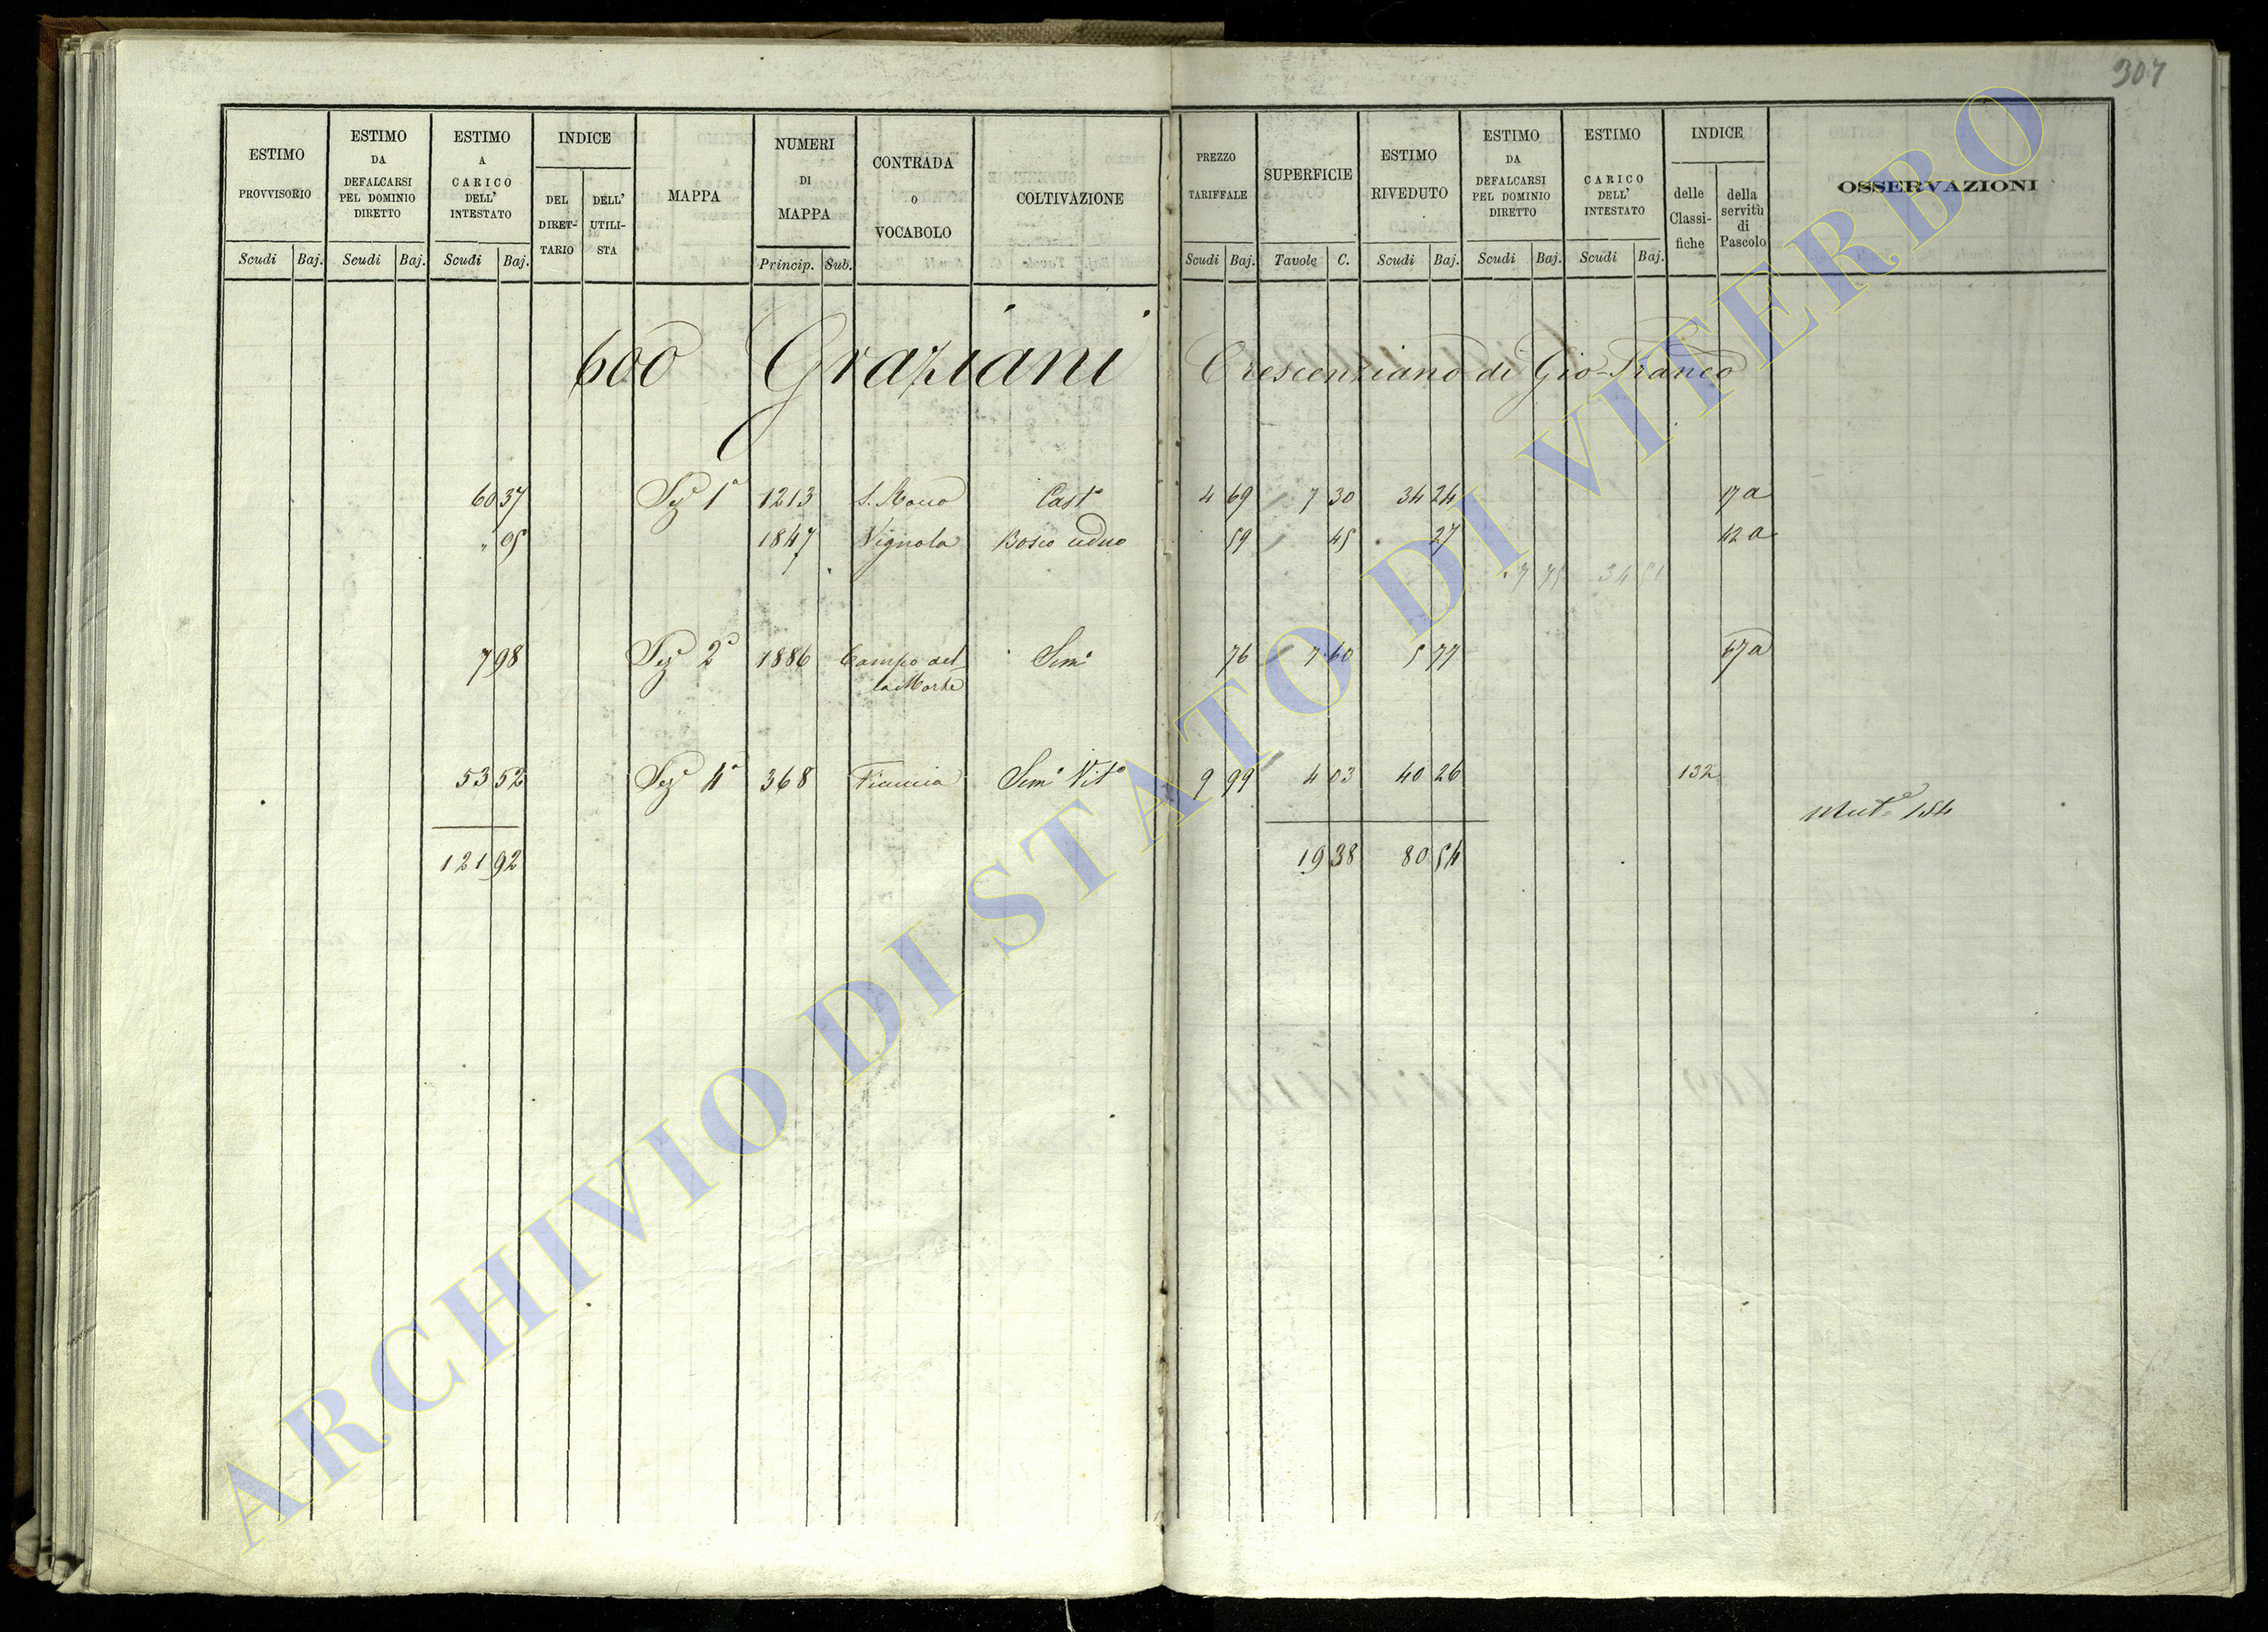 307
ESTIMO PROVVISORIO | ESTIMO DA DEFALCARSI PEL DOMINIO DIRETTO | ESTIMO A CARICO DELL' INTESTATO | INDICE | MAPPA | NUMERI DI MAPPA | CONTRADA o VOCABOLO | COLTIVAZIONE | PREZZO TARIFFALE | SUPERFICIE | ESTIMO RIVEDUTO | ESTIMO DA DEFALCARSI PEL DOMINIO DIRETTO | ESTIMO A CARICO DELL' INTESTATO | INDICE | OSSERVAZIONI
DEL DIRET-TARIO | DELL' UTILI-STA | delle Classi-fiche | della servitù di Pascolo
Scudi | Baj. | Scudi | Baj. | Scudi | Baj. | Princip. | Sub. | Scudi | Baj. | Tavole | C. | Scudi | Baj. | Scudi | Baj. | Scudi | Baj.
600 Graziani Crescenziano di Gio-Franco
60 37 Sez.e 1a 1213 S. Rocco Cast.o 4 69 7 30 34 24 17a
" 05 1847 Vignola Bosco ceduo 59 45 27 42a
7 75 34 51
7 98 Sez.e 2a 1886 Campo del Sem.o 76 7 60 5 77 67a
la Morte
53 52 Sez.e 4a 368 Sem.o Vit.o 9 99 4 03 40 26 132
Mut.e 154
121 92 19 38 80 54
ARCHIVIO DI STATO DI VITERBO